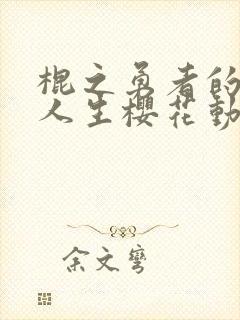 棍之勇者的
人生櫻花動
余文彎